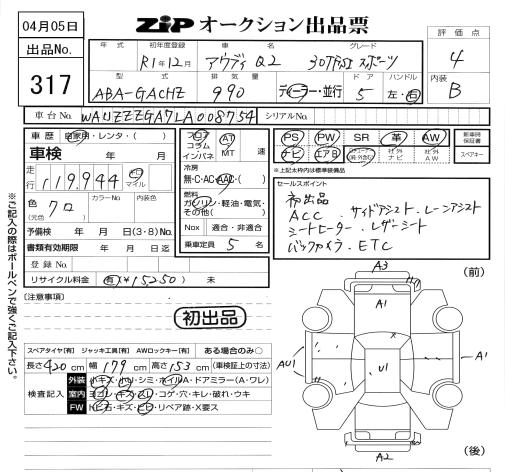 04月05日
ZIP オークション出品票
出品No.
317
年式
初年度登録
車名
グレード
R1年12月
アウディ Q2
30TFSI スポーツ
評価点
4
型式
排気量
ドア
ハンドル
ABA-GACHZ
990
ディーラー・並行
5
左・右
内装
B
車台No.
WAUZZZGA7LA008754
シリアルNo.
車歴
自家用・レンタ・( )
車検 年 月
走行
119,944
キロ
マイル
色
(元色)
クロ
カラーNo.
内装色
予備検 年 月 日(3・8)No.
書類有効期限 年 月 日迄
登録No.
リサイクル料金 有(¥15,250) 未
フロア
コラム
インパネ
AT
MT
速
冷房
無・C・AC・AAC・( )
燃料
ガソリン・軽油・電気・
その他( )
Nox
適合・非適合
乗車定員 5 名
PS
PW
SR
革
AW
ナビ
エアB
社外
ナビ
社外
AW
新車時
保証書
スペアキー
※上記太枠内は標準装備品
セールスポイント
初出品
ACC . サイドアシスト . レーンアシスト
シートヒーター . レザーシート
バックカメラ . ETC
(注意事項)
初出品
スペアタイヤ[有] ジャッキ工具[有] AWロックキー[有] ある場合のみ○
長さ 420 cm 幅 179 cm 高さ 153 cm (車検証上の寸法)
検査記入
外装
小キズ・小U・シミ・ホイルA・ドアミラー(A・ワレ)
室内
ヨゴレ・キズ・スレ・コゲ・穴・キレ・破れ・ウキ
FW
トビ石・キズ・ヒビ・リペア跡・X要ス
※ご記入の際はボールペンで強くご記入下さい。
(前)
A3
A1
AU1
U1
A1
A2
(後)